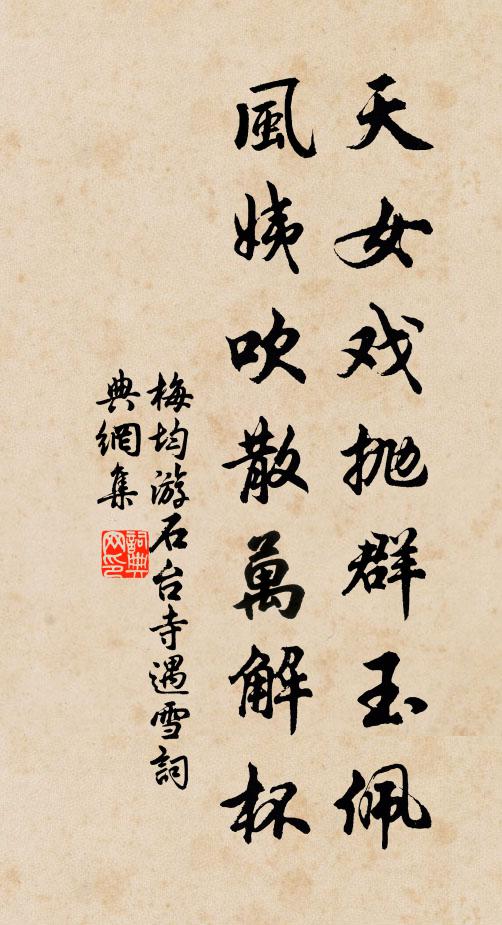 天女戏抛群玉佩
風姨吹散萬解杯
梅均游石台寺遇雪詞
典網集
詞典網印